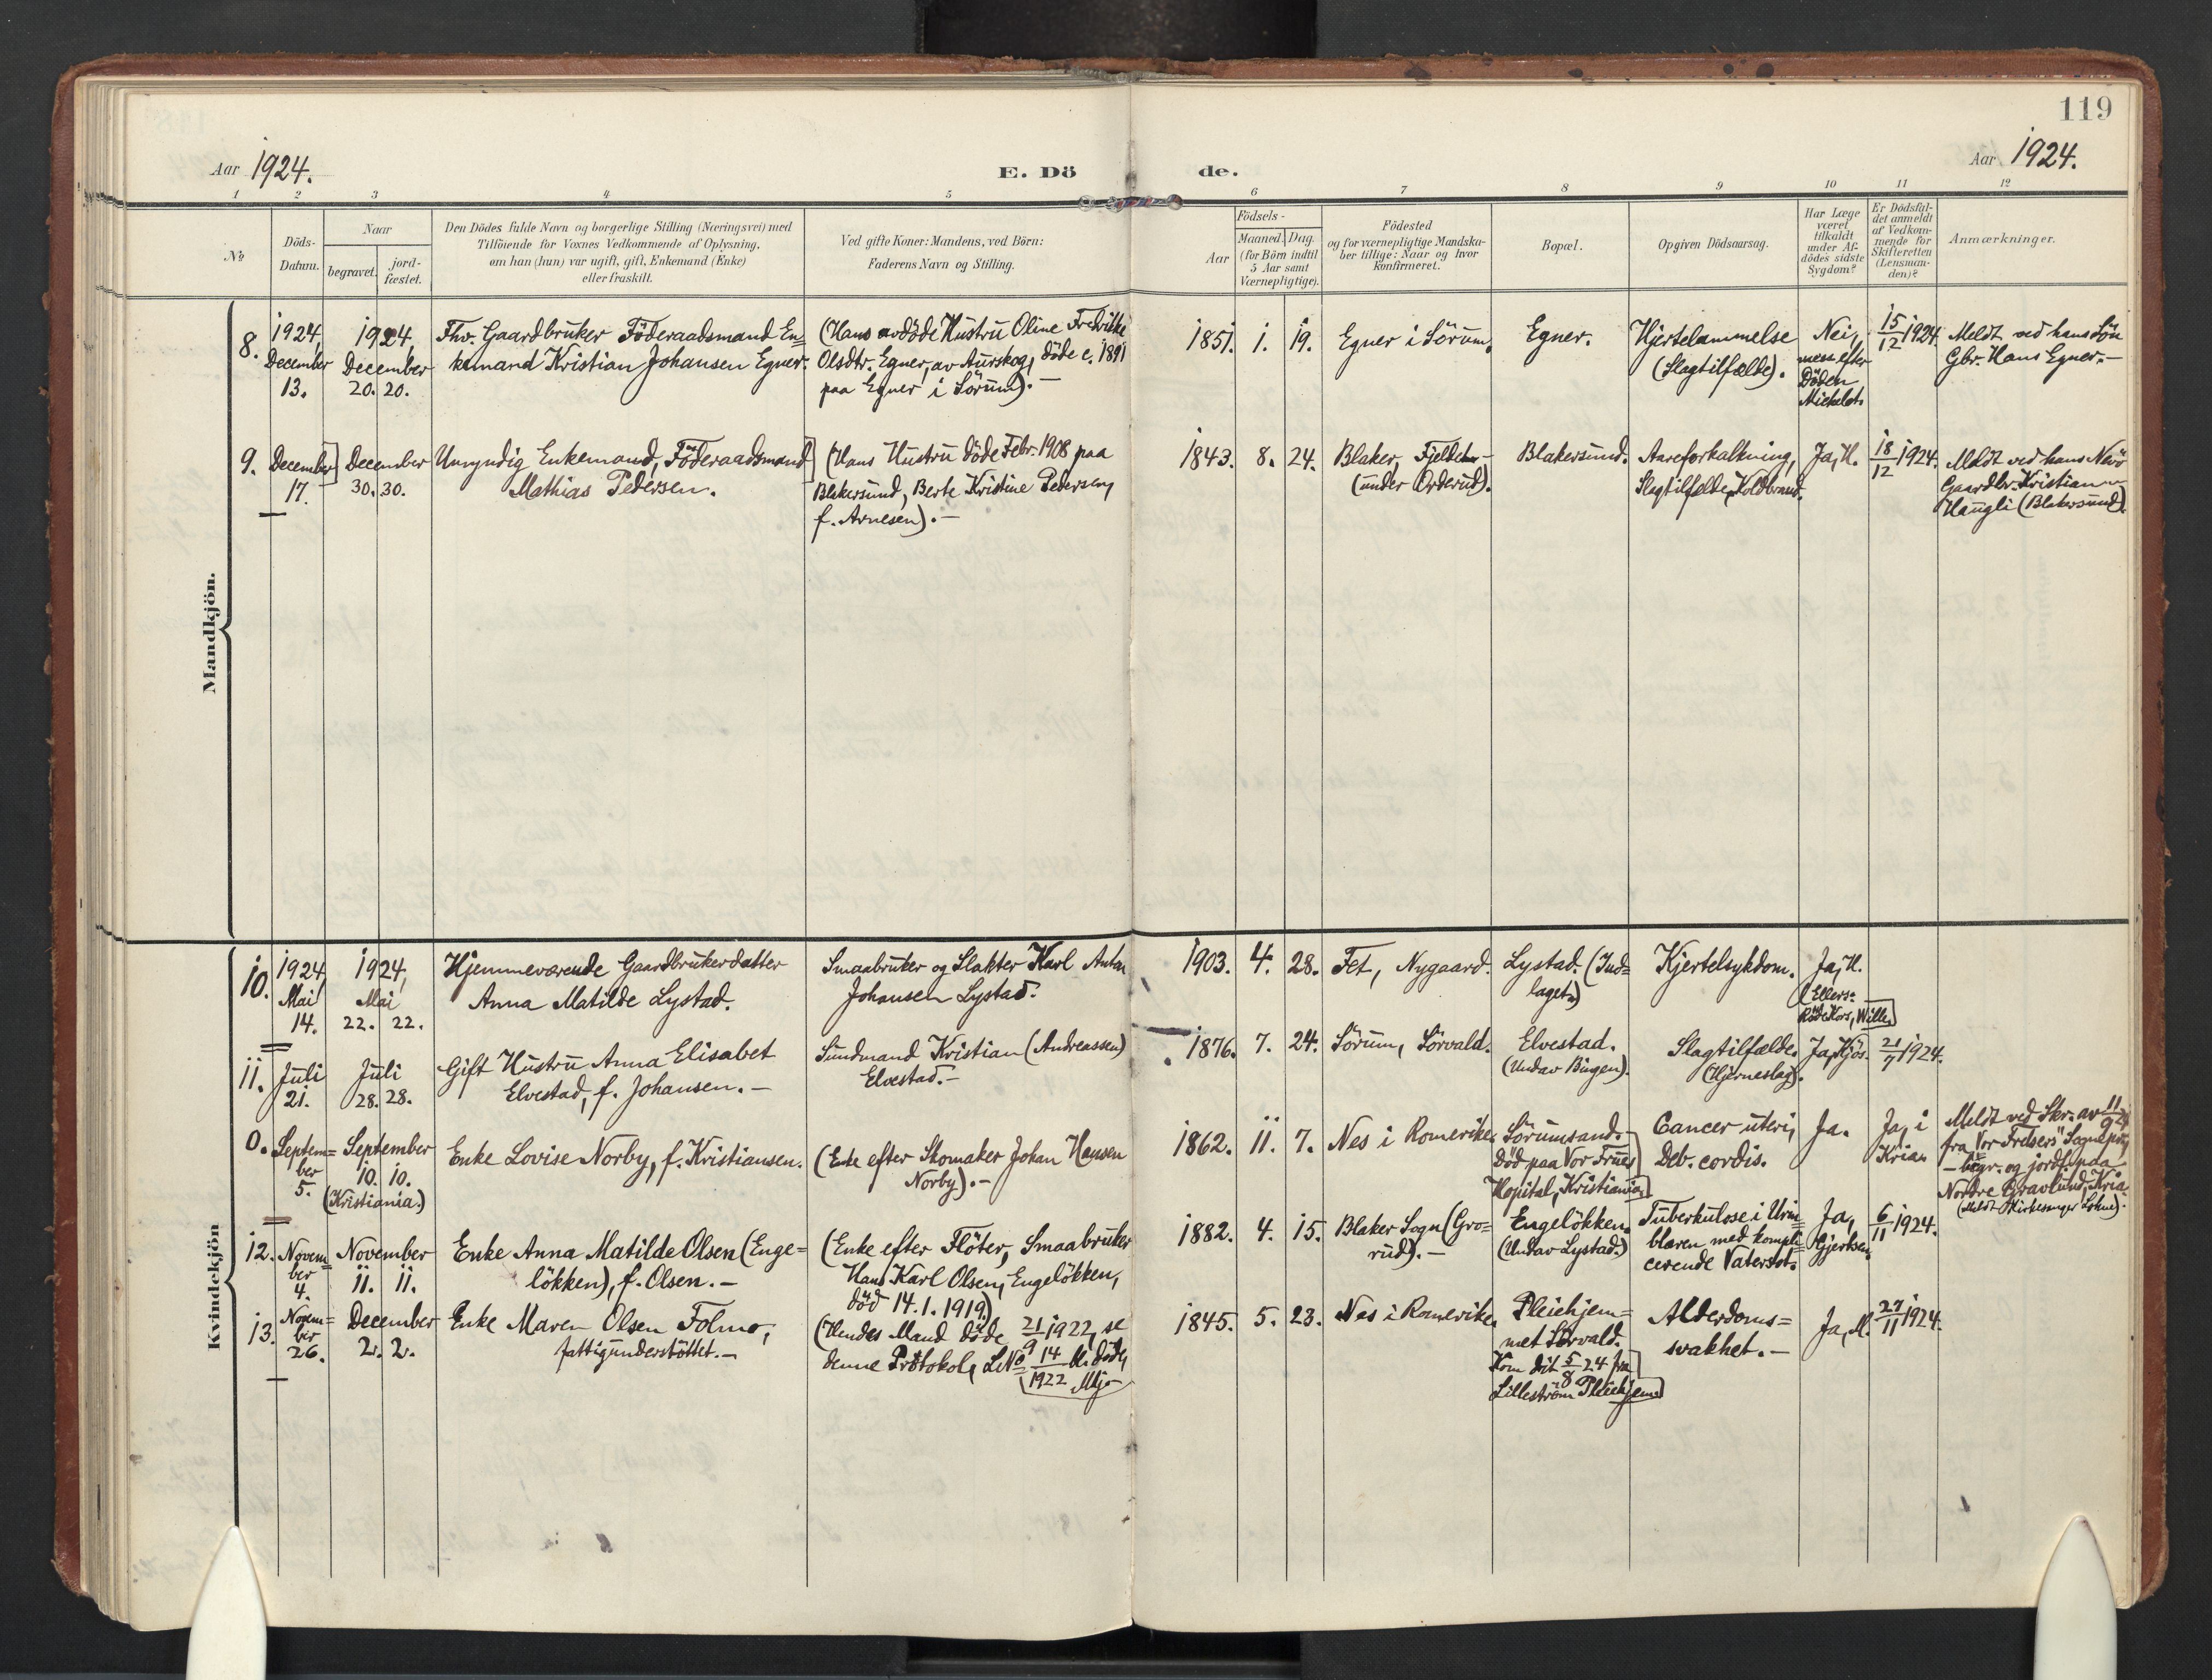 119
Aar 1924.
E. Dö de.
Aar 1924.
1 2 3 4 5 6 7 8 9 10 11 12
No
Döds-
Datum.
Naar
begravet.
jord-
fæstet.
Den Dödes fulde Navn og borgerlige Stilling (Næringsvei) med
Tilföiende for Voxnes Vedkommende af Oplysning,
om han (hun) var ugift, gift, Enkemand (Enke)
eller fraskilt.
Ved gifte Koner: Mandens, ved Börn:
Faderens Navn og Stilling.
Födsels-
Aar
Maaned. Dag.
(for Börn indtil
5 Aar samt
Værnepligtige).
Födested
og for værnepligtige Mandska-
ber tillige: Naar og hvor
konfirmeret.
Bopæl.
Opgiven Dödsaarsag.
Har Læge
været
tilkaldt
under Af-
dödes sidste
Sygdom?
Er Dödsfal-
det anmeldt
af Vedkom-
mende for
Skifteretten
(Lensman-
den)?
Anmærkninger.
Mandkjön.
8.
1924,
December
13.
1924,
December
20. 20.
Fhv. Gaardbruker Föderaadsmand En=
kemand Kristian Johansen Egner.
(Hans avdöde Hustru Oline Fredrikke
Olsdtr. Egner, av Aurskog, döde c. 1891
paa Egner i Sörum).-
1851. 1. 19.
Egner i Sörum.
Egner.
Hjertelammelse
(Slagtilfælde).
Nei,
men efter
Döden
Mickelet.
15/12 1924.
Meldt ved hans Sön
Gbr. Hans Egner.-
9.
December
17.
December
30. 30.
Umyndig Enkemand, Föderaadsmand
Mathias Pedersen.
(Hans Hustru döde Febr. 1908 paa
Blakersund, Berte Kristine Pedersen,
f. Arnesen).-
1843. 8. 24.
Blaker,
(under Orderud).
Blakersund.
Aareforkalkning,
Slagtilfælde, Koldbrand.
Ja, H.
18/12 1924.
Meldt ved hans Nevö
Gaardbr. Kristian
Haugli (Blakersund).
Kvindekjön
10.
1924,
Mai
14.
1924,
Mai
22. 22.
Hjemmeværende Gaardbrukerdatter
Anna Matilde Lystad.
Smaabruker og Slakter Karl Anton
Johansen Lystad.
1903. 4. 28.
Fet, Nygaard.
Lystad. (Ind=
laget.)
Kjertelsykdom.
Ja, H.
(Ellers:
Röde Kors, Wille.)
11.
Juli
21.
Juli
28. 28.
Gift Hustru Anna Elisabet
Elvestad, f. Johansen.-
Sundmand Kristian (Andreassen)
Elvestad.-
1876. 7. 24.
Sörum, Sörvald.
Elvestad.
(Undav Bingen).
Slagtilfælde.
(Hjerneslag).
Ja, Kjös.
21/7 1924.
0.
Septem=
ber
5.
September
10. 10.
(Kristiania.)
Enke Lovise Norby, f. Kristiansen.
(Enke efter Skomaker Johan Hansen
Norby).-
1862. 11. 7.
Nes i Romerike.
Sörumsand.
Död paa Vor Frues
Hospital, Kristiania.
Cancer uteri,
Deb. cordis.
Ja.
Ja, i
Kria.
Meldt ved Skr. av 11/9 24
fra "Vor Frelsers" Sognepr.,
- begr. og jordf. paa
Nordre Gravlund, Kria.
12.
Novem=
ber
4.
November
11. 11.
Enke Anna Matilde Olsen (Enge=
lökken), f. Olsen.-
(Enke efter Flöter, Smaabruker
Hans Karl Olsen, Engelökken,
död 14.1.1919)
1882. 4. 15.
Blaker Sogn (Gro=
rud).-
Engelökken.
(Undav Lystad.)
Tuberkulose i Urin=
blæren med kompli=
cerende Vatersot.
Ja,
Gjertsen.
6/11 1924.
13.
Novem=
ber
26.
December
2. 2.
Enke Maren Olsen Folmo,
fattigunderstöttet.-
(Hendes Mand döde 21/9 1922, se
denne Protokol, L. No 14/1922 M. döde,
1845. 5. 23.
Nes i Romerike.
Pleiehjem=
met Sörvald.
Kom dit 5/8 24 fra
Lilleström Pleiehjem
Alderdoms=
svakhet.-
Ja, M.
27/11 1924.